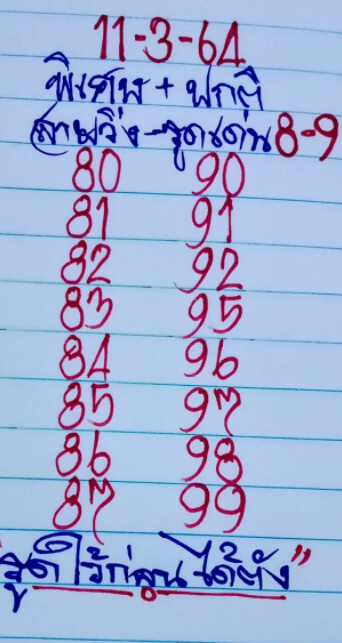 11-3-64
พิเศษ + ปกติ
สายวิ่ง-รูดเด่น 8-9
80 90
81 91
82 92
83 95
84 96
85 97
86 98
87 99
"รูดไว้ก่อนได้ตัง"